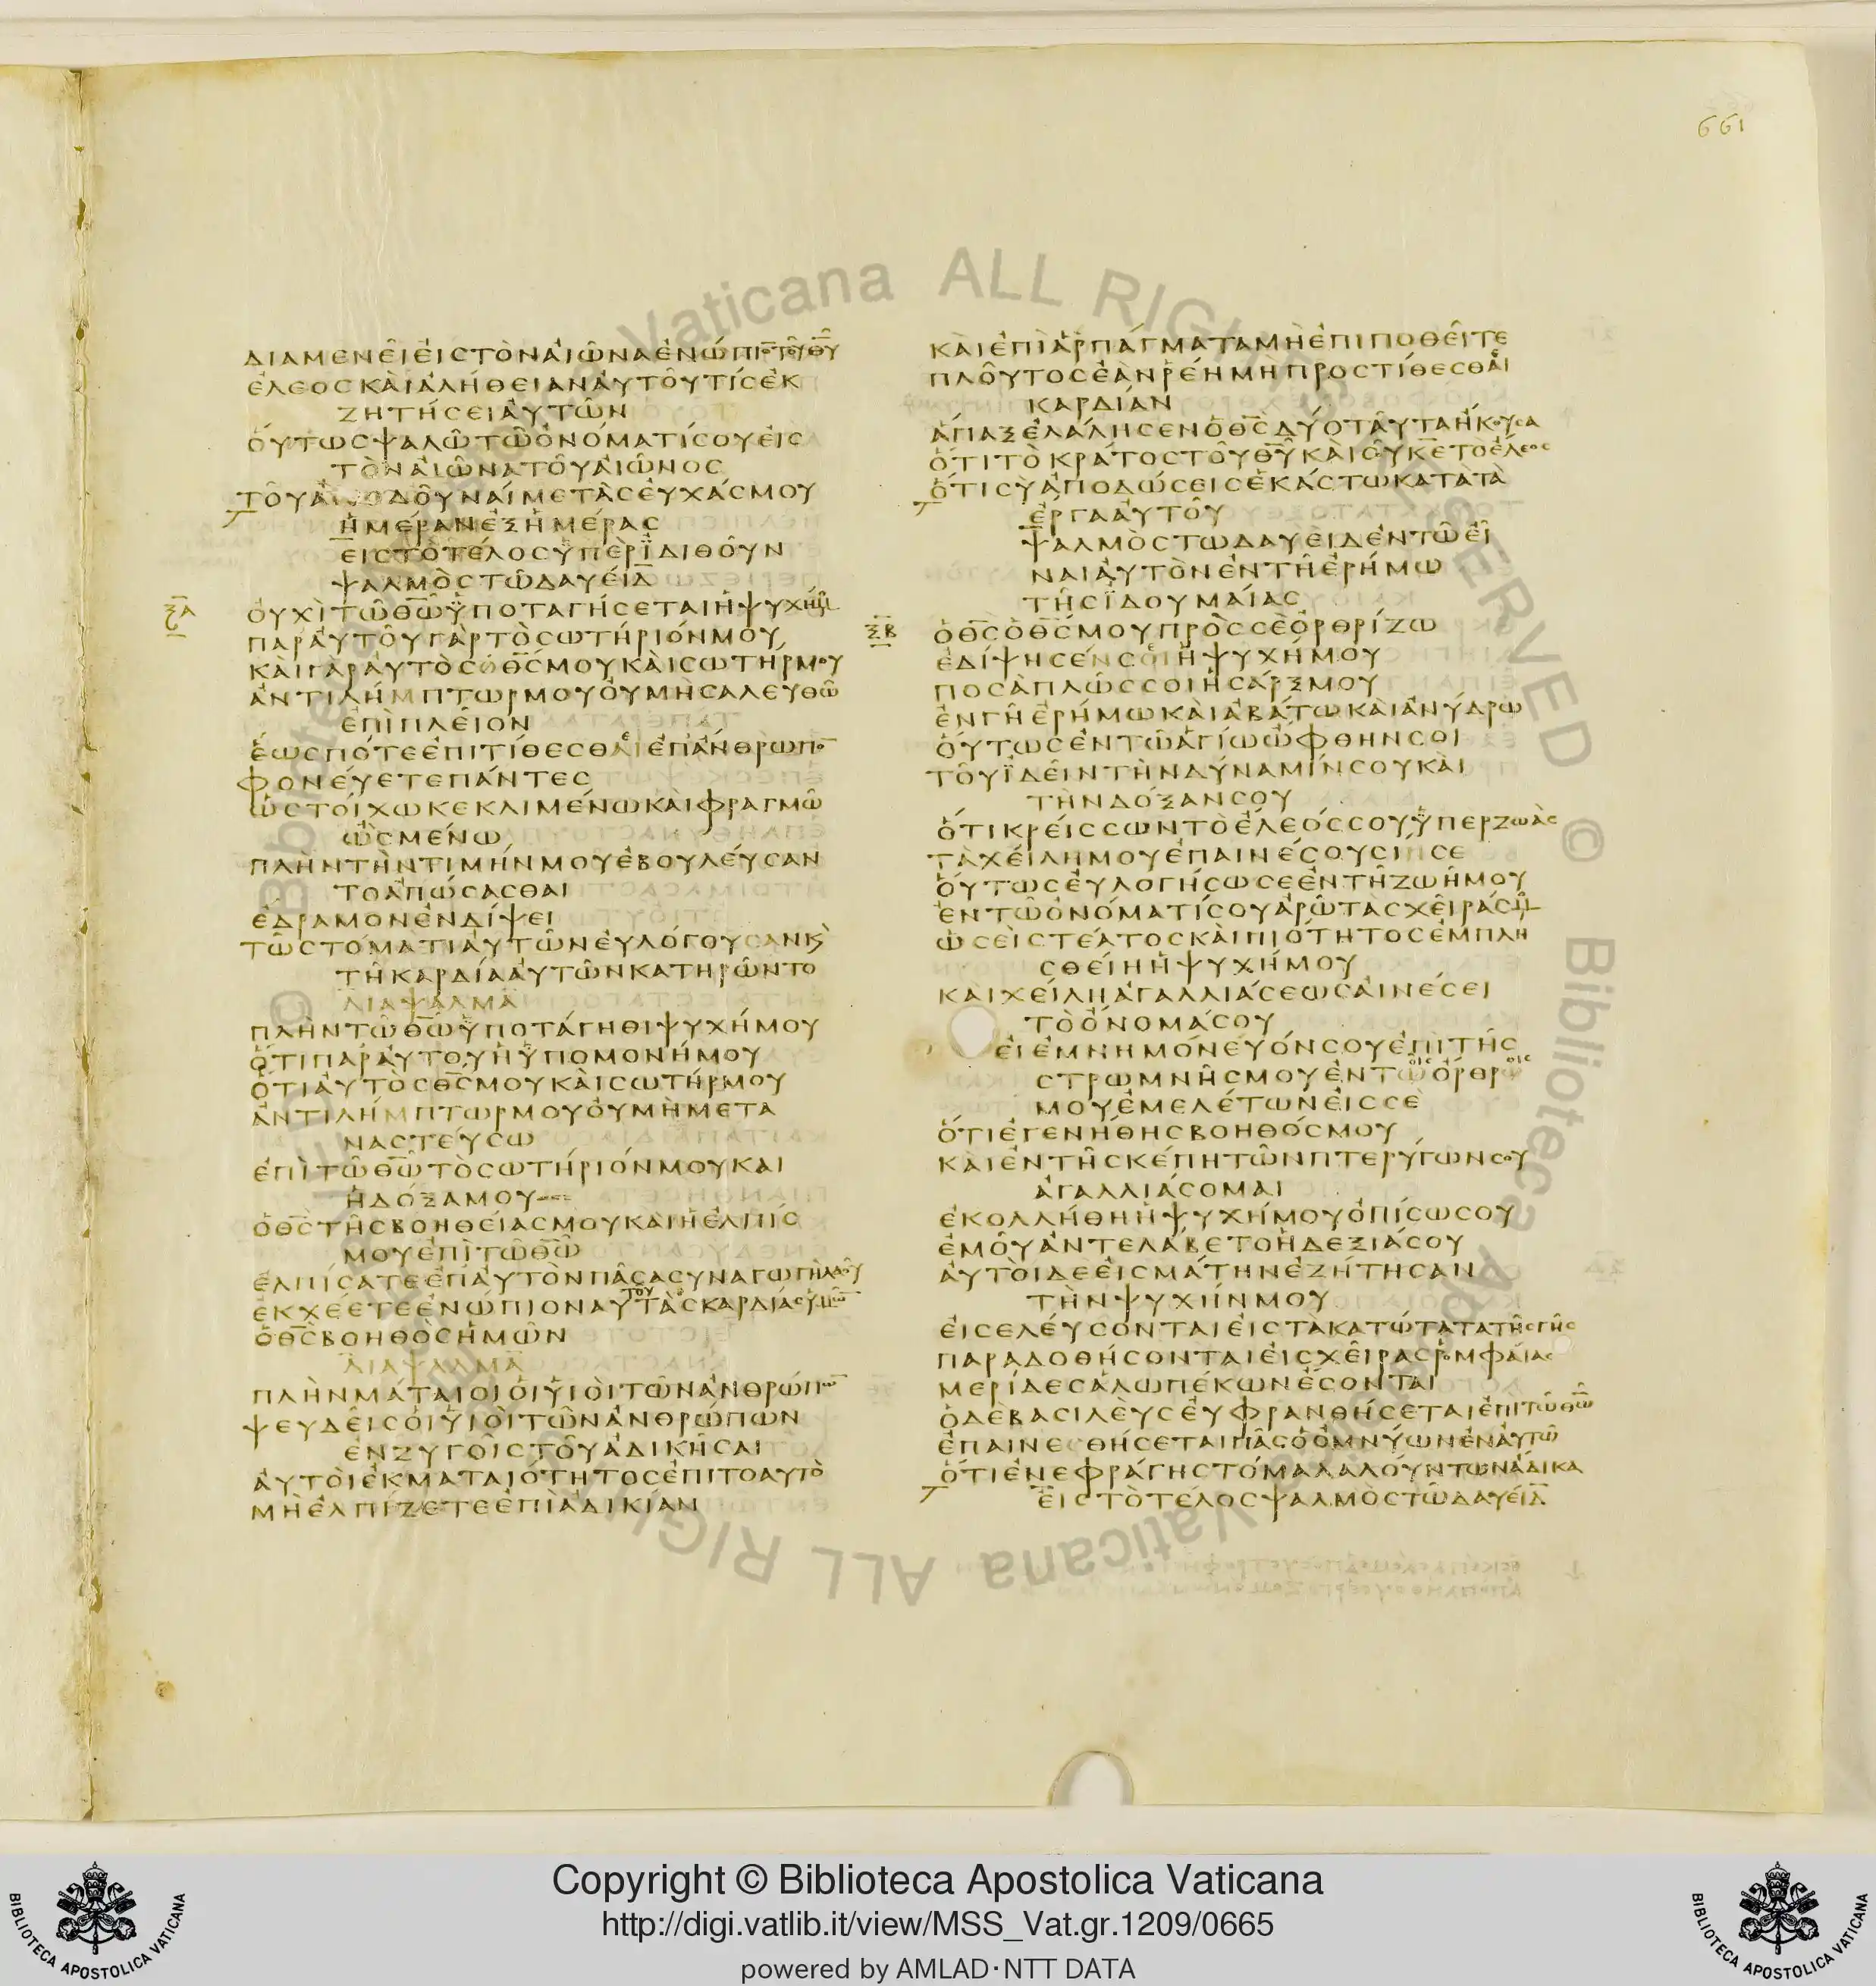 661
ΔΙΑΜΕΝΕῖ ΕἰϹ ΤῸΝ ΑἰῶΝΑ ἐΝώΠΙΟ̄ ΤΟῦ Θ̅Υ̅
ἔΛΕΟϹ ΚΑὶ ἀΛήΘΕΙΑΝ ΑὐΤΟῦ ΤίϹ ἐΚ
ΖΗΤήϹΕΙ ΑὐΤῶΝ
ΟὕΤΩϹ ΨΑΛῶ Τῷ ὀΝόΜΑΤί ϹΟΥ ΕἰϹ
ΤῸΝ ΑἰῶΝΑ ΤΟῦ ΑἰῶΝΟϹ
ΤΟῦ ἀΠΟΔΟῦΝΑί ΜΕ ΤὰϹ ΕὐΧάϹ ΜΟΥ
ἡΜέΡΑΝ ἐΞ ἡΜέΡΑϹ
ΕἰϹ Τὸ ΤέΛΟϹ ὑΠὲΡ ἸΔΙΘΟῦΝ
ΨΑΛΜὸϹ Τῷ ΔΑΥΕίΔ
ΞΑ
ΟὐΧὶ Τῷ Θ̅Ω̅ ὑΠΟΤΑΓήϹΕΤΑΙ ἡ ΨΥΧή ΜΟΥ
ΠΑΡ ΑὐΤΟῦ ΓὰΡ Τὸ ϹΩΤήΡΙόΝ ΜΟΥ
ΚΑὶ ΓὰΡ ΑὐΤὸϹ ὁ Θ̅Ϲ̅ ΜΟΥ ΚΑὶ ϹΩΤήΡ ΜΟΥ
ἀΝΤΙΛήΜΠΤΩΡ ΜΟΥ Οὐ Μὴ ϹΑΛΕΥΘῶ
ἐΠὶ ΠΛΕῖΟΝ
ἕΩϹ ΠόΤΕ ἐΠΙΤίΘΕϹΘΑΙ ἐΠ ἄΝΘΡΩΠΟ̄
ΦΟΝΕύΕΤΕ ΠάΝΤΕϹ
ὡϹ ΤΟίΧΩ ΚΕΚΛΙΜέΝΩ ΚΑὶ ΦΡΑΓΜῷ
ὠϹΜέΝΩ
ΠΛὴΝ ΤὴΝ ΤΙΜήΝ ΜΟΥ ἐΒΟΥΛΕύϹΑΝ
ΤΟ ἀΠώϹΑϹΘΑΙ
ἔΔΡΑΜΟΝ ἐΝ ΔίΨΕΙ
Τῷ ϹΤόΜΑΤΙ ΑὐΤῶΝ ΕὐΛόΓΟΥϹΑΝ Κ̀
Τῇ ΚΑΡΔίΑ ΑὐΤῶΝ ΚΑΤΗΡῶΝΤΟ
ΔΙΑΨΑΛΜΑ
ΠΛὴΝ Τῷ Θ̅Ω̅ ὑΠΟΤάΓΗΘΙ ΨΥΧή ΜΟΥ
ὅΤΙ ΠΑΡ ΑὐΤΟῦ ἡ ὑΠΟΜΟΝή ΜΟΥ
ὅΤΙ ΑὐΤὸϹ Θ̅Ϲ̅ ΜΟΥ ΚΑὶ ϹΩΤήΡ ΜΟΥ
ἀΝΤΙΛήΜΠΤΩΡ ΜΟΥ Οὐ Μὴ ΜΕΤΑ
ΝΑϹΤΕύϹΩ
ἐΠὶ Τῷ Θ̅Ω̅ Τὸ ϹΩΤήΡΙόΝ ΜΟΥ ΚΑΙ
ἡ ΔόΞΑ ΜΟΥ
ὁ Θ̅Ϲ̅ ΤῆϹ ΒΟΗΘΕίΑϹ ΜΟΥ ΚΑὶ ἡ ἐΛΠίϹ
ΜΟΥ ἐΠὶ Τῷ Θ̅Ω̅
ἐΛΠίϹΑΤΕ ἐΠ ΑὐΤὸΝ ΠᾶϹΑ ϹΥΝΑΓΩΓὴ ΛΑΟῦ
ἐΚΧέΕΤΕ ἐΝώΠΙΟΝ ΑΥΤΟΥ ΤὰϹ ΚΑΡΔίΑϹ ὑΜῶ̄
ὁ Θ̅Ϲ̅ ΒΟΗΘὸϹ ἡΜῶΝ
ΔΙΑΨΑΛΜΑ
ΠΛὴΝ ΜάΤΑΙΟΙ Οἱ ΥἱΟὶ ΤῶΝ ἀΝΘΡώΠΩ̄
ΨΕΥΔΕῖϹ Οἱ ΥἱΟὶ ΤῶΝ ἀΝΘΡώΠΩΝ
ἐΝ ΖΥΓΟῖϹ ΤΟῦ ἀΔΙΚῆϹΑΙ
ΑὐΤΟὶ ἐΚ ΜΑΤΑΙόΤΗΤΟϹ ἐΠΙ ΤΟ ΑΥΤὸ
Μὴ ἐΛΠίΖΕΤΕ ἐΠὶ ἀΔΙΚίΑΝ
ΚΑὶ ἐΠὶ ἁΡΠάΓΜΑΤΑ Μὴ ἐΠΙΠΟΘΕῖΤΕ
ΠΛΟῦΤΟϹ ἐὰΝ ῥέΗ Μὴ ΠΡΟϹΤίΘΕϹΘΑΙ
ΚΑΡΔίΑΝ
ἅΠΑΞ ἐΛάΛΗϹΕΝ ὁ Θ̅Ϲ̅ ΔύΟ ΤΑῦΤΑ ἤΚΟΥϹΑ
ὅΤΙ Τὸ ΚΡάΤΟϹ ΤΟῦ Θ̅Υ̅ ΚΑὶ ϹΟῦ Κ̅Ε̅ Τὸ ἔΛΕΟϹ
ὅΤΙ Ϲὺ ἀΠΟΔώϹΕΙϹ ἑΚάϹΤΩ ΚΑΤὰ Τὰ
ἔΡΓΑ ΑὐΤΟῦ
ΨΑΛΜὸϹ ΤΩ ΔΑΥΕὶΔ ἐΝ Τῷ Εἶ
ΝΑΙ ΑὐΤὸΝ ἐΝ Τῇ ἐΡήΜΩ
ΤῆϹ ἸΔΟΥΜΑίΑϹ
ΞΒ
ὁ Θ̅Ϲ̅ ὁ Θ̅Ϲ̅ ΜΟΥ ΠΡὸϹ Ϲὲ ὀΡΘΡίΖΩ
ἐΔίΨΗϹΕΝ ϹΟΙ ἡ ΨΥΧή ΜΟΥ
ΠΟϹΑΠΛῶϹ ϹΟΙ ἡ ϹάΡΞ ΜΟΥ
ἐΝ Γῇ ἐΡήΜΩ ΚΑὶ ἀΒάΤΩ ΚΑὶ ἀΝύΔΡΩ
ΟὕΤΩϹ ἐΝ Τῷ ἁΓίΩ ὤΦΘΗΝ ϹΟΙ
ΤΟῦ ἸΔΕῖΝ ΤὴΝ ΔύΝΑΜίΝ ϹΟΥ ΚΑὶ
ΤὴΝ ΔόΞΑΝ ϹΟΥ
ὅΤΙ ΚΡΕίϹϹΩΝ Τὸ ἔΛΕόϹ ϹΟΥ ὑΠΕΡ ΖΩὰϹ
Τὰ ΧΕίΛΗ ΜΟΥ ἐΠΑΙΝέϹΟΥϹΙΝ ϹΕ
ΟὕΤΩϹ ΕὐΛΟΓήϹΩ ϹΕ ἐΝ Τῇ ΖΩῇ ΜΟΥ
ἐΝ Τῷ ὀΝόΜΑΤί ϹΟΥ ἀΡῶ ΤὰϹ ΧΕῖΡάϹ ΜΟΥ
ὡϹΕὶ ϹΤέΑΤΟϹ ΚΑὶ ΠΙόΤΗΤΟϹ ἐΜΠΛΗ
ϹΘΕίΗ ἡ ΨΥΧή ΜΟΥ
ΚΑὶ ΧΕίΛΗ ἀΓΑΛΛΙάϹΕΩϹ ΑἰΝέϹΕΙ
Τὸ ὄΝΟΜά ϹΟΥ
Εἰ ἐΜΝΗΜόΝΕΥόΝ ϹΟΥ ἐΠὶ ΤῆϹ
ϹΤΡΩΜΝῆϹ ΜΟΥ ἐΝ ΤΟΙϹ ὄΡΘΡΟΙϹ
ΜΟΥ ἐΜΕΛέΤΩΝ ΕἰϹ Ϲὲ
ὅΤΙ ἐΓΕΝήΘΗϹ ΒΟΗΘόϹ ΜΟΥ
ΚΑὶ ἐΝ Τῇ ϹΚέΠΗ ΤῶΝ ΠΤΕΡύΓΩΝ ϹΟΥ
ἀΓΑΛΛΙάϹΟΜΑΙ
ἐΚΟΛΛήΘΗ ἡ ΨΥΧή ΜΟΥ ὀΠίϹΩ ϹΟΥ
ἐΜΟῦ ἀΝΤΕΛάΒΕΤΟ ἡ ΔΕΞΙά ϹΟΥ
ΑὐΤΟὶ ΔΕ ΕἰϹ ΜάΤΗΝ ἐΖήΤΗϹΑΝ
ΤὴΝ ΨΥΧήΝ ΜΟΥ
ΕἰϹΕΛΕύϹΟΝΤΑΙ ΕἰϹ Τὰ ΚΑΤώΤΑΤΑ ΤῆϹ ΓῆϹ
ΠΑΡΑΔΟΘήϹΟΝΤΑΙ ΕἰϹ ΧΕῖΡΑϹ ῥΟΜΦΑίΑϹ
ΜΕΡίΔΕϹ ἀΛΩΠέΚΩΝ ἔϹΟΝΤΑΙ
ὁ Δὲ ΒΑϹΙΛΕὺϹ ΕὐΦΡΑΝΘήϹΕΤΑΙ ἐΠὶ Τῷ Θ̅Ω̅
ἐΠΑΙΝΕϹΘήϹΕΤΑΙ ΠᾶϹ ὁ ὀΜΝύΩΝ ἐΝ ΑὐΤῷ
ὅΤΙ ἐΝΕΦΡάΓΗ ϹΤόΜΑ ΛΑΛΟύΝΤΩΝ ἄΔΙΚΑ
ΕἰϹ Τὸ ΤέΛΟϹ ΨΑΛΜὸϹ Τῷ ΔΑΥΕίΔ
Copyright © Biblioteca Apostolica Vaticana
http://digi.vatlib.it/view/MSS_Vat.gr.1209/0665
powered by AMLAD·NTT DATA
BIBLIOTECA APOSTOLICA VATICANA
BIBLIOTECA APOSTOLICA VATICANA